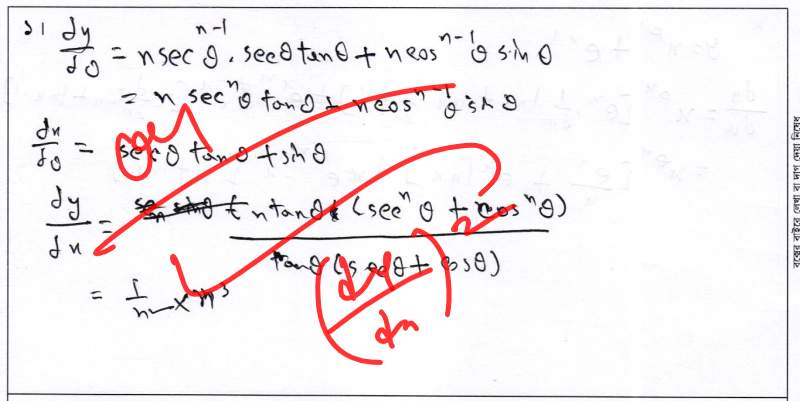 ১। dy/dθ = n sec^(n-1) θ . secθ tanθ + n cos^(n-1) θ sin θ
= n sec^n θ tanθ + n cos^(n-1) θ sin θ
dx/dθ = secθ tanθ + sinθ
dy/dx = n tanθ (sec^n θ + cos^n θ) / tanθ (secθ + cosθ)
(dy/dx)^2
বক্সের বাইরে লেখা বা দাগ দেয়া নিষেধ